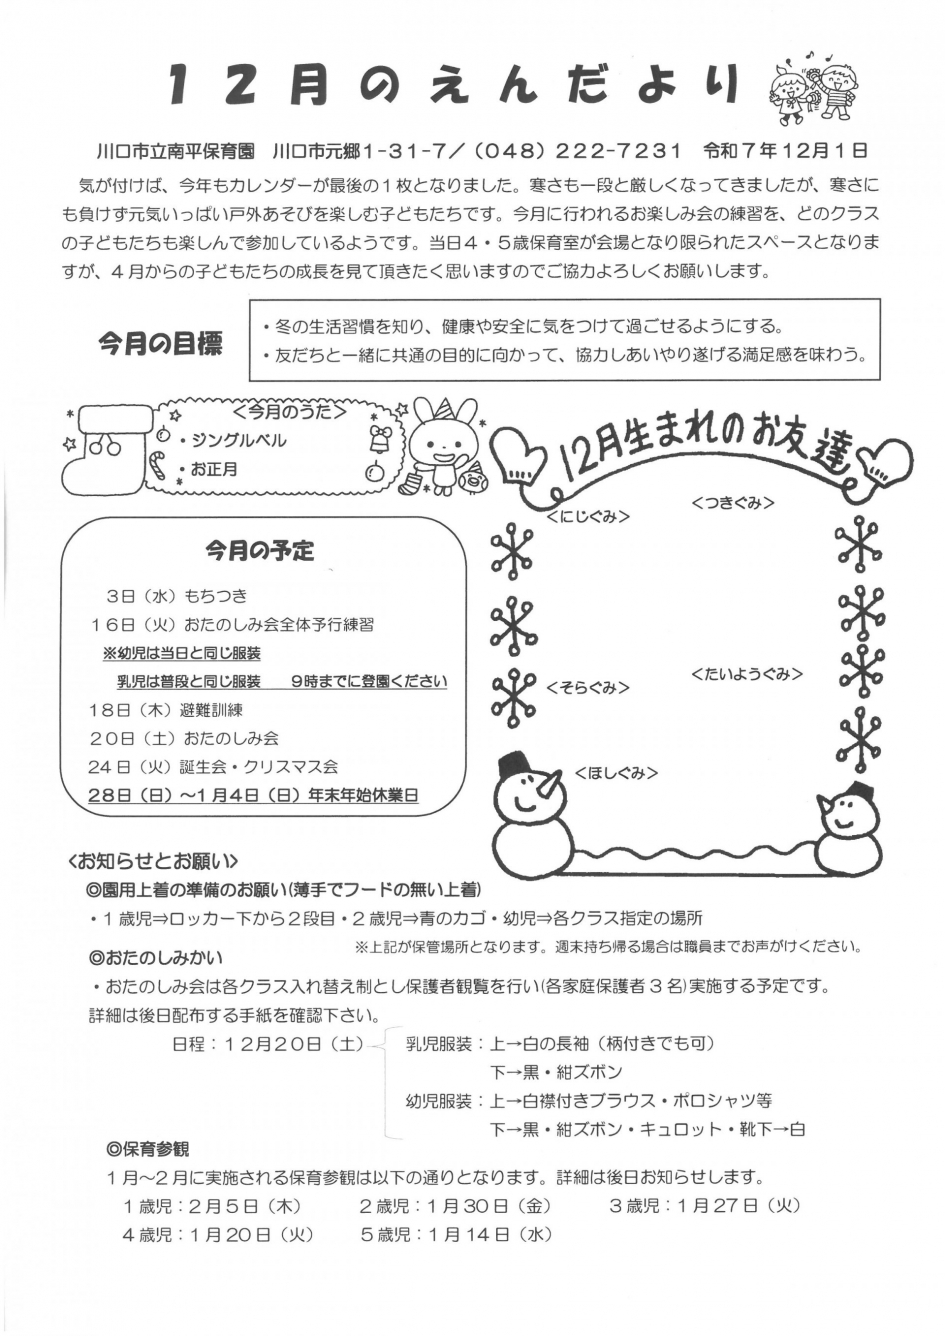 12月のえんだより
川口市立南平保育園　川口市元郷1-31-7／（048）222-7231　令和7年12月1日
気が付けば、今年もカレンダーが最後の1枚となりました。寒さも一段と厳しくなってきましたが、寒さに
も負けず元気いっぱい戸外あそびを楽しむ子どもたちです。今月に行われるお楽しみ会の練習を、どのクラス
の子どもたちも楽しんで参加しているようです。当日4・5歳保育室が会場となり限られたスペースとなりま
すが、4月からの子どもたちの成長を見て頂きたく思いますのでご協力よろしくお願いします。
今月の目標
・冬の生活習慣を知り、健康や安全に気をつけて過ごせるようにする。
・友だちと一緒に共通の目的に向かって、協力しあいやり遂げる満足感を味わう。
＜今月のうた＞
・ジングルベル
・お正月
12月生まれのお友達
＜にじぐみ＞　＜つきぐみ＞
＜そらぐみ＞　＜たいようぐみ＞
＜ほしぐみ＞
今月の予定
3日（水）もちつき
16日（火）おたのしみ会全体予行練習
※幼児は当日と同じ服装
乳児は普段と同じ服装　9時までに登園ください
18日（木）避難訓練
20日（土）おたのしみ会
24日（火）誕生会・クリスマス会
28日（日）～1月4日（日）年末年始休業日
<お知らせとお願い>
◎園用上着の準備のお願い(薄手でフードの無い上着)
・1歳児⇒ロッカー下から2段目・2歳児⇒青のカゴ・幼児⇒各クラス指定の場所
※上記が保管場所となります。週末持ち帰る場合は職員までお声がけください。
◎おたのしみかい
・おたのしみ会は各クラス入れ替え制とし保護者観覧を行い(各家庭保護者3名)実施する予定です。
詳細は後日配布する手紙を確認下さい。
日程：12月20日（土）　乳児服装：上→白の長袖（柄付きでも可）
下→黒・紺ズボン
幼児服装：上→白襟付きブラウス・ポロシャツ等
下→黒・紺ズボン・キュロット・靴下→白
◎保育参観
1月～2月に実施される保育参観は以下の通りとなります。詳細は後日お知らせします。
1歳児：2月5日（木）　2歳児：1月30日（金）　3歳児：1月27日（火）
4歳児：1月20日（火）　5歳児：1月14日（水）